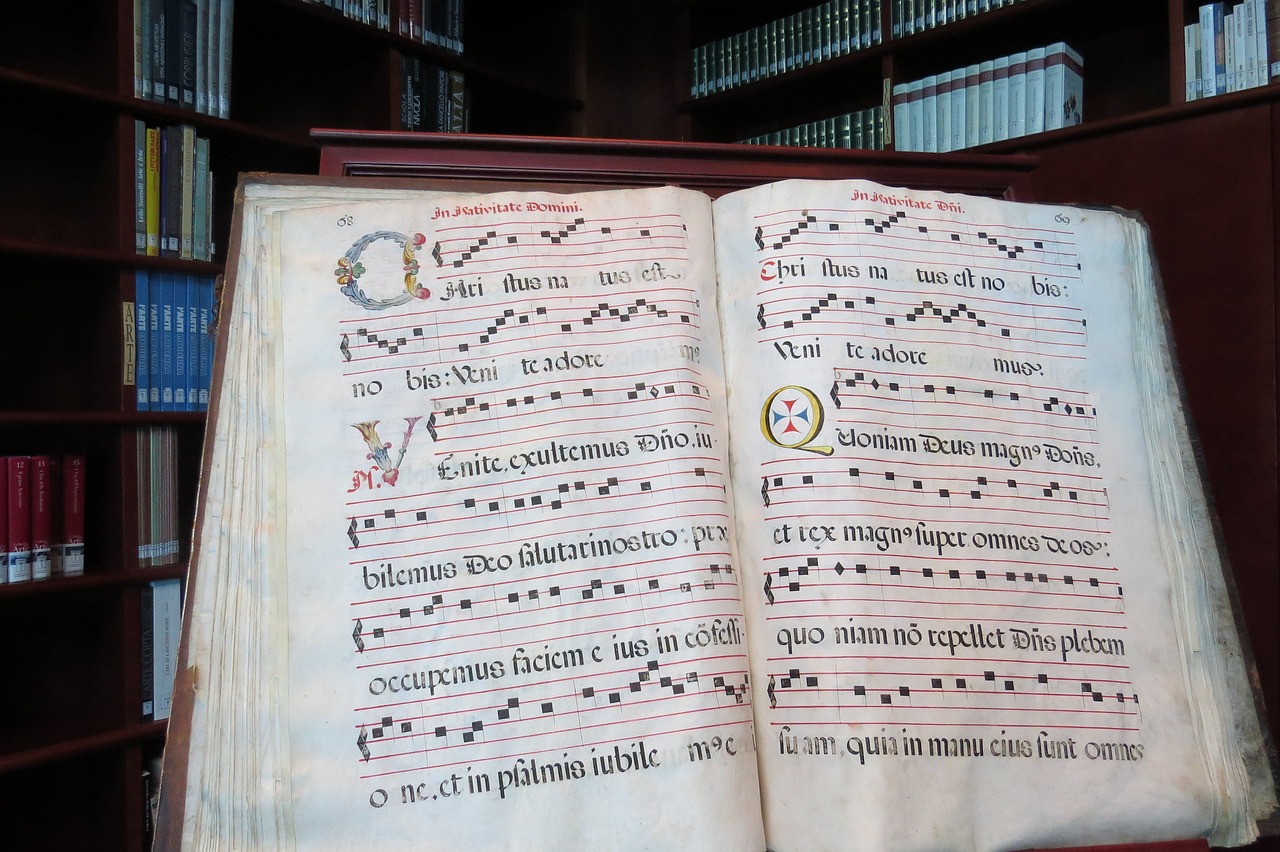 68
In Nativitate Domini.
CHri stus na tus est
no bis: Veni te adore m9
Ps. VEnite, exultemus Dño, iu-
bilemus Deo salutarinostro: prę
occupemus faciem e ius in cõfessi-
o ne, et in psalmis iubile m9 e
69
In Nativitate Dñi.
Chri stus na tus est no bis:
Veni te adore mus.
QUoniam Deus magn9 Doñs,
et rex magn9 super omnes deos:
quo niam nõ repellet Dñs plebem
suam, quia in manu eius sunt omnes
ARTE
L'ARTE
L'ARTE
L'ARTE
L'ARTE
L'ARTE